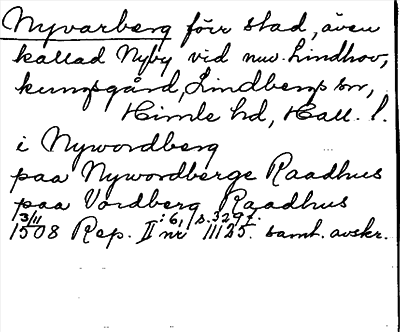 Nyvarberg förr stad, även
kallad Nyby vid nuv. Lindhov,
kungsgård, Lindbergs sn,
Himle hd, Hall. l.
i Nywordberg
paa Nywordbergs Raadhus
paa Vardberg Raadhus
3/11 :6, s. 329 f.
1508 Rep. II nr 11125. samt. avskr.